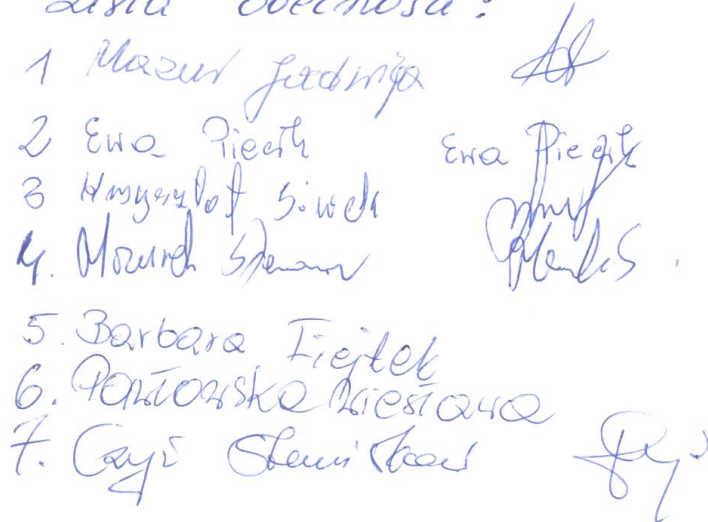 Lista obecności:
1 Mazur Jadwiga
2 Ewa Piecyk Ewa Piecyk
3 Krzysztof Siwek
4. Mazurek
5. Barbara Fiejtek
6. Pawłowska Wiesława
7. Czyż Stanisław